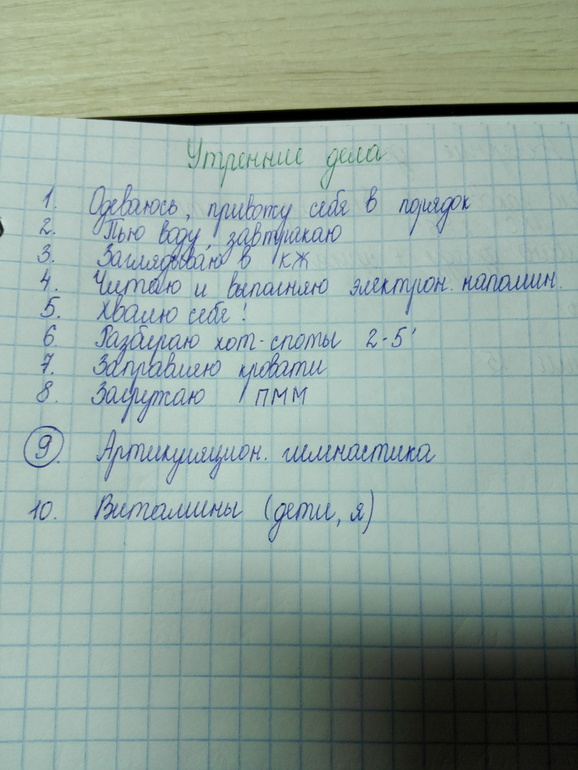 Утренние дела
1. Одеваюсь, привожу себя в порядок
2. Пью воду, завтракаю
3. Заглядываю в КЖ
4. Читаю и выполняю электрон. напомин.
5. Хвалю себя!
6. Разбираю хот-споты 2-5'
7. Заправляю кровати
8. Загружаю ПММ
9. Артикуляцион. гимнастика
10. Витамины (дети, я)